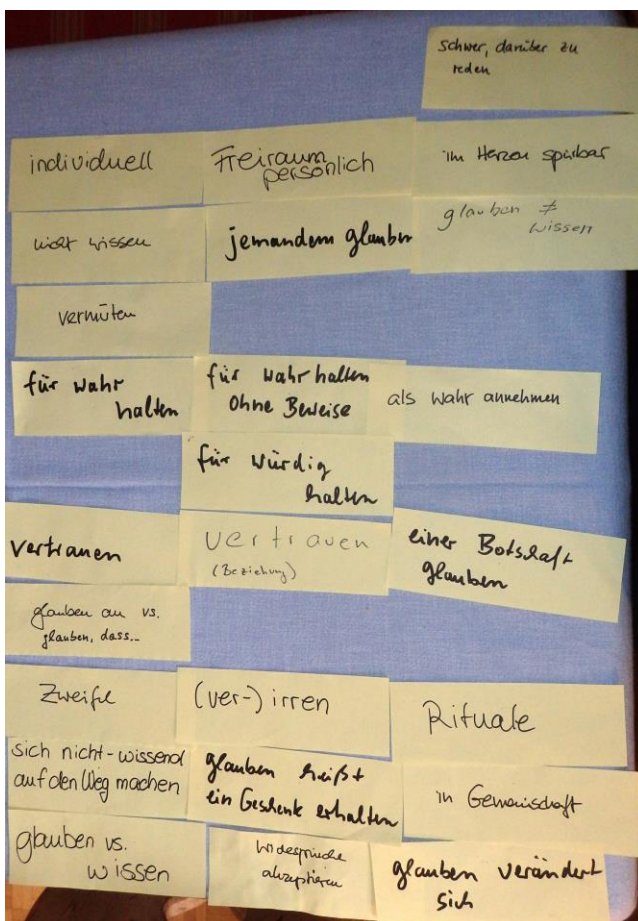 schwer, darüber zu
reden
individuell
Freiraum
persönlich
im Herzen spürbar
nicht wissen
jemandem glauben
glauben ≠
wissen
vermuten
für wahr
halten
für wahr halten
ohne Beweise
als wahr annehmen
für würdig
halten
vertrauen
vertrauen
(Beziehung)
einer Botschaft
glauben
glauben an vs.
glauben, dass...
Zweifel
(ver-) irren
Rituale
sich nicht-wissend
auf den Weg machen
glauben heißt
ein Geschenk erhalten
in Gemeinschaft
glauben vs.
wissen
Widersprüche
akzeptieren
glauben verändert
sich